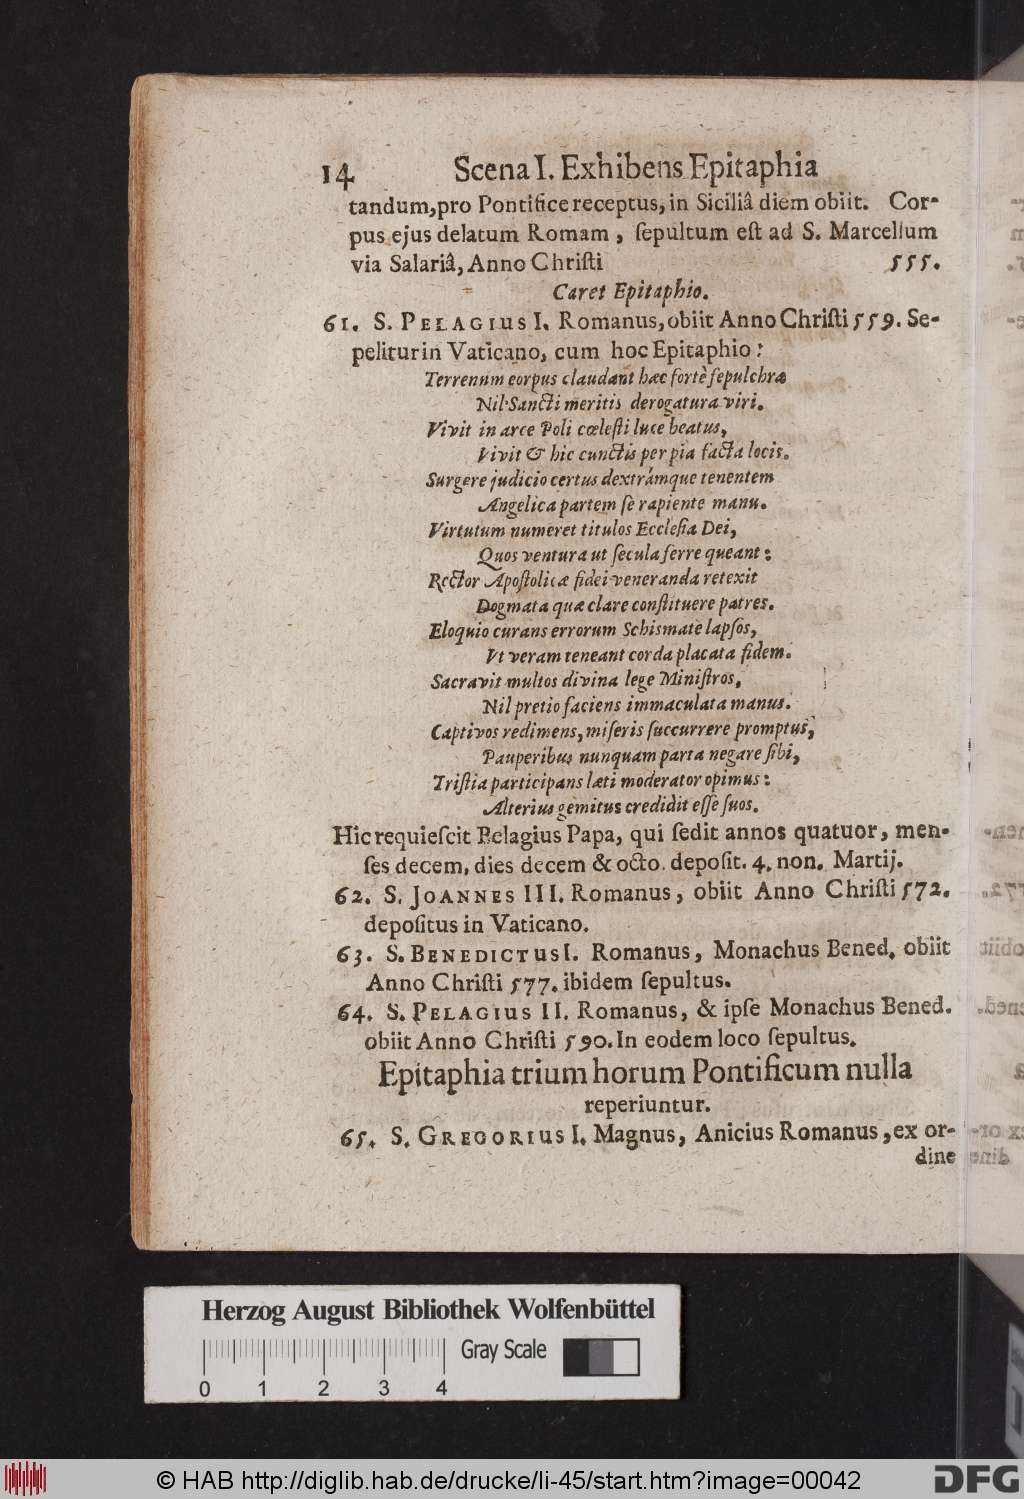 14 Scena I. Exhibens Epitaphia
tandum, pro Pontifice receptus, in Siciliâ diem obiit. Cor-
pus ejus delatum Romam, ſepultum eſt ad S. Marcellum
via Salariâ, Anno Chriſti 555.
Caret Epitaphio.
61. S. PELAGIUS I. Romanus, obiit Anno Chriſti 559. Se-
pelitur in Vaticano, cum hoc Epitaphio:
Terrenum corpus claudant hæc fortè ſepulchra
Nil Sancti meritis derogatura viri.
Vivit in arce Poli cœleſti luce beatus,
Vivit & hic cunctis per pia facta locis.
Surgere judicio certus dextrámque tenentem
Angelica partem ſe rapiente manu.
Virtutum numeret titulos Eccleſia Dei,
Quos ventura ut ſecula ferre queant:
Rector Apoſtolicæ fidei veneranda retexit
Dogmata quæ clare conſtituere patres.
Eloquio curans errorum Schismate lapſos,
Ut veram teneant corda placata fidem.
Sacravit multos divina lege Miniſtros,
Nil pretio faciens immaculata manus.
Captivos redimens, miſeris ſuccurrere promptus,
Pauperibus nunquam parta negare ſibi,
Triſtia participans læti moderator opimus:
Alterius gemitus credidit eſſe ſuos.
Hic requieſcit Pelagius Papa, qui ſedit annos quatuor, men-
ſes decem, dies decem & octo. depoſit. 4. non. Martij.
62. S. JOANNES III. Romanus, obiit Anno Chriſti 572.
depoſitus in Vaticano.
63. S. BENEDICTUS I. Romanus, Monachus Bened. obiit
Anno Chriſti 577. ibidem ſepultus.
64. S. PELAGIUS II. Romanus, & ipſe Monachus Bened.
obiit Anno Chriſti 590. In eodem loco ſepultus.
Epitaphia trium horum Pontificum nulla
reperiuntur.
65. S. GREGORIUS I. Magnus, Anicius Romanus, ex or-
dine
Herzog August Bibliothek Wolfenbüttel
Gray Scale
0 1 2 3 4
© HAB http://diglib.hab.de/drucke/li-45/start.htm?image=00042
DFG